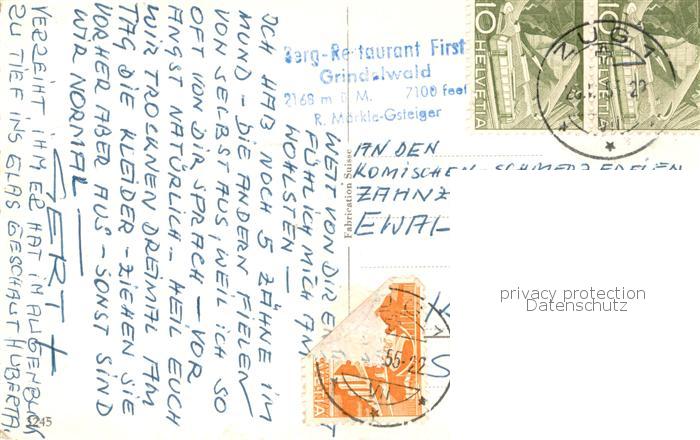 WEIT VON DIR E
FÜHL ICH MICH AM
WOHLSTEN —
ICH HAB NOCH 5 ZÄHNE IM
MUND – DIE ANDERN FIELEN
VON SELBST AUS, WEIL ICH SO
OFT VON DIR SPRACH – VOR
ANGST NATÜRLICH – HEIL EUCH
WIR TROCKNEN DREIMAL AM
TAG DIE KLEIDER – ZIEHEN SIE
VORHER ABER AUS – SONST SIND
WIR NORMAL —
GERT +
VERZEIHT IHM ER HAT IM AUGENBLICK
ZU TIEF INS GLAS GESCHAUT HUBERTA.
5245
Berg-Restaurant First
Grindelwald
2168 m ü. M. 7100 feet
R. Märkle-Gsteiger
Fabrication Suisse
10 HELVETIA
10 HELVETIA
ZUG 1
AN DEN
KOMISCHEN – SCHMERZ FREIEN
ZAHNZ
EWAL
K
S
HELVETIA
55-22
VII
privacy protection
Datenschutz